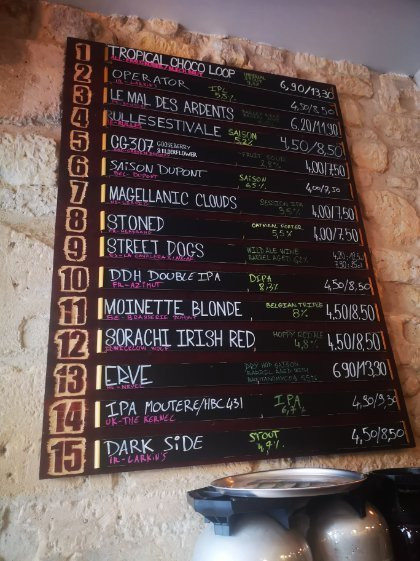 1 TROPICAL CHOCO LOOP 6,90/13,30
2 OPERATOR IPL 5,5% 4,50/8,50
3 LE MAL DES ARDENTS 6,20/11,90
4 BULLESESTIVALE SAISON 5,2% 4,50/8,50
5 GG307 GOOSEBERRY & ELDERFLOWER 4,00/7,50
6 SAISON DUPONT SAISON 6,5% 4,00/7,50
BEL- DUPONT
7 MAGELLANIC CLOUDS SESSION IPA 3,5% 4,00/7,50
8 STONED OATMEAL PORTER 5,5% 4,00/7,50
9 STREET DOGS WILD ALE WINE BARREL AGED
10 DDH DOUBLE IPA DIPA 8,3% 4,50/8,50
FR-AZIMUT
11 MOINETTE BLONDE BELGIAN TRIPLE 8% 4,50/8,50
BE-BRASSERIE DUPONT
12 SORACHI IRISH RED HOPPY RED ALE 4,8% 4,50/8,50
13 ERVE 6,90/13,30
14 IPA MOUTERE/HBC 431 IPA 6,7% 4,80/9,30
UK-THE KERNEL
15 DARK SIDE STOUT 4,9% 4,50/8,50
IR-LARKIN'S